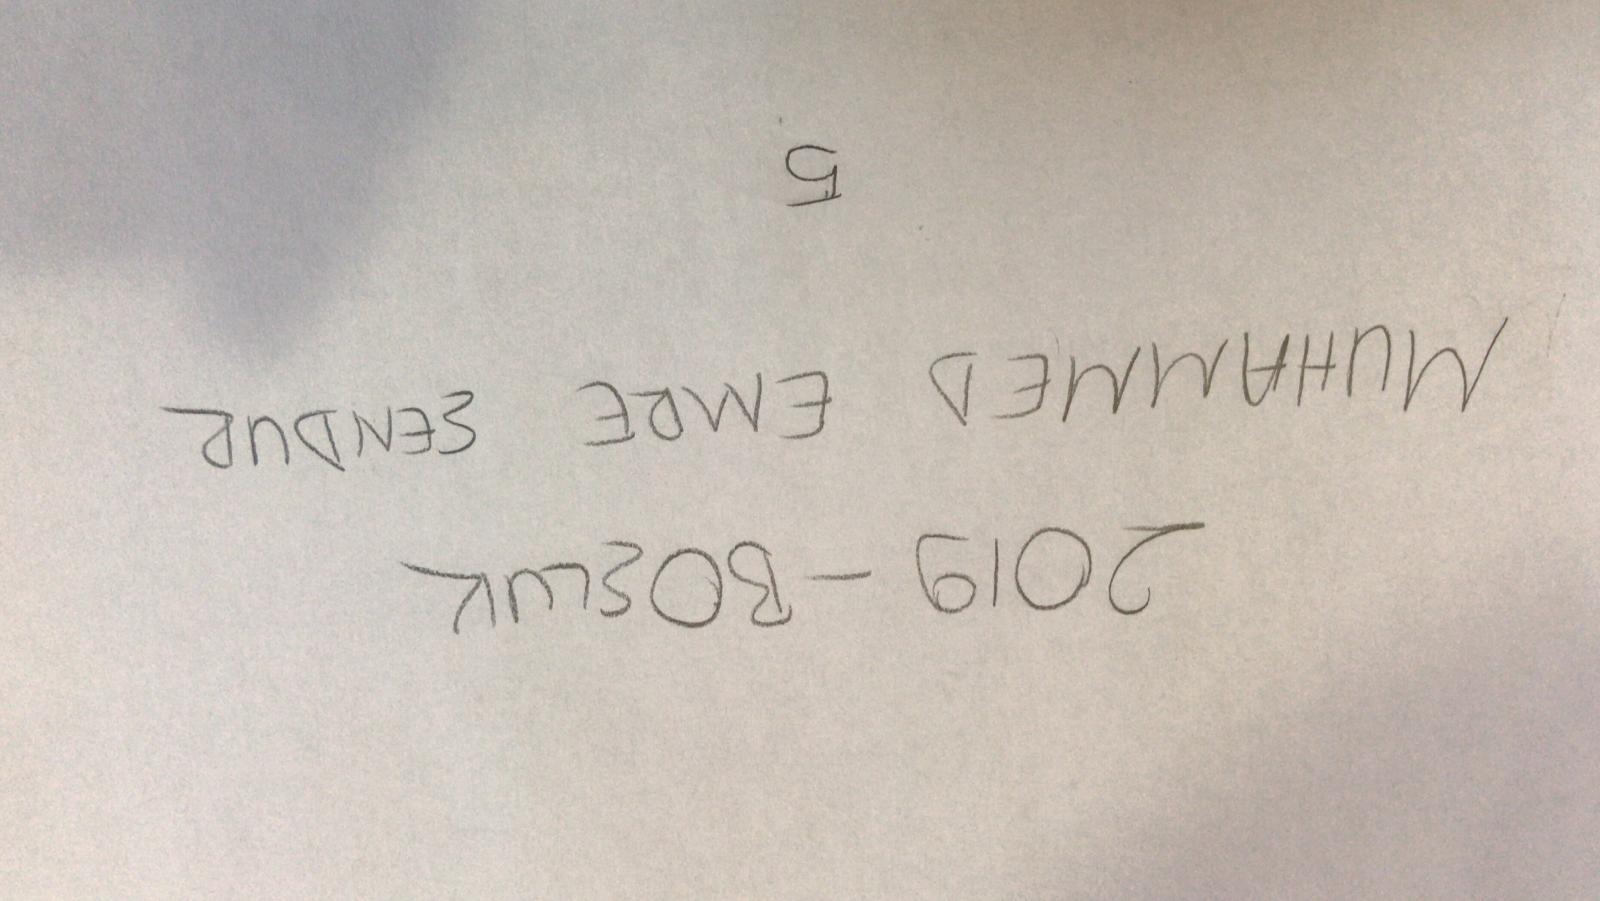 2019 - BOSLUK
MUHAMMED EMRE SENDUR
5